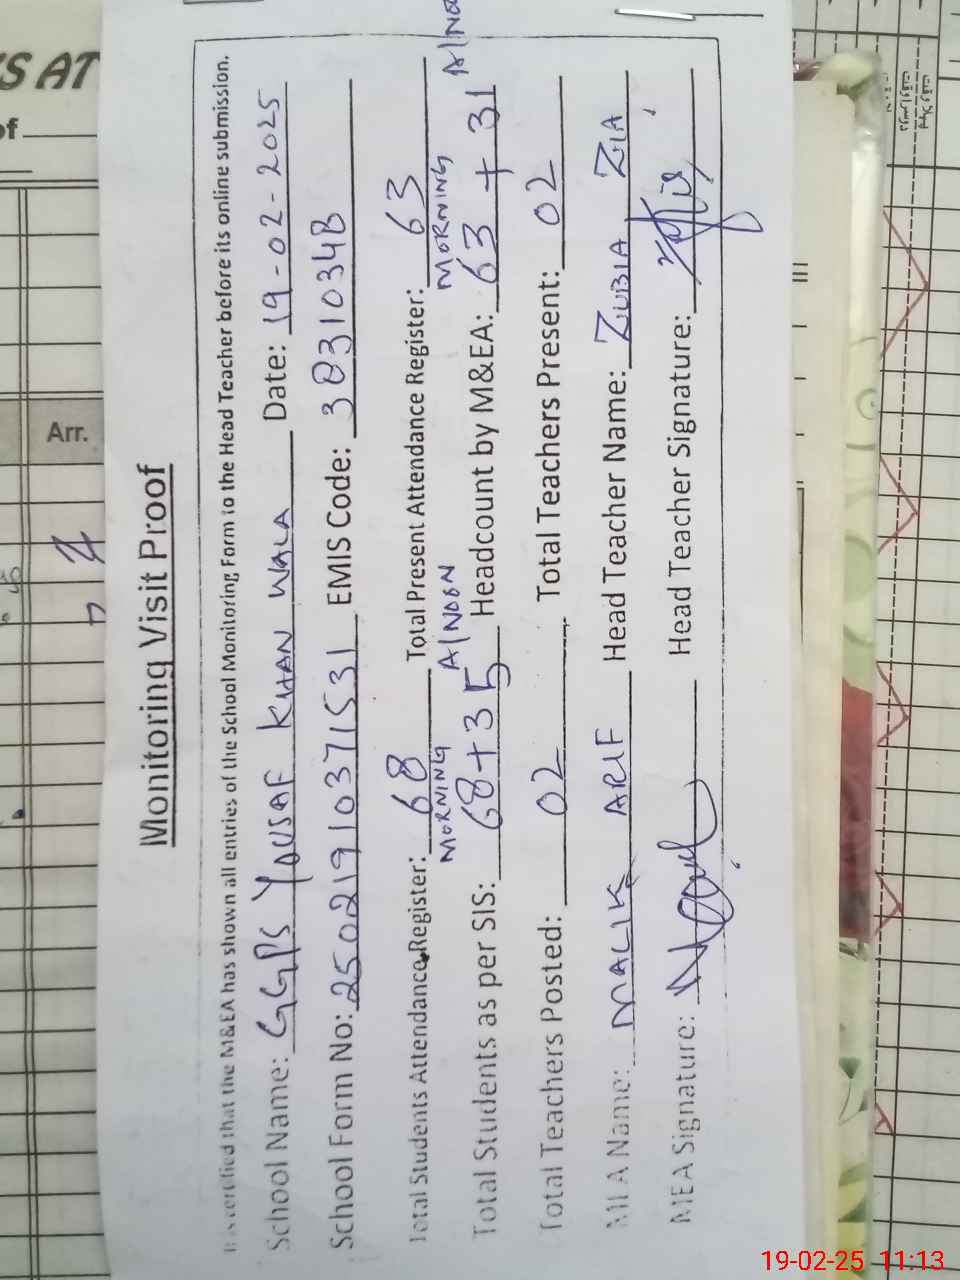 Monitoring Visit Proof
It is certified that the M&EA has shown all entries of the School Monitoring Form to the Head Teacher before its online submission.
School Name: GGPS YOUSAF KHAN WALA Date: 19-02-2025
School Form No: 250219103715 31 EMIS Code: 38310348
Total Students Attendance Register: 68 Total Present Attendance Register: 63
MORNING A/NOON MORNING A/NOO
Total Students as per SIS: 68+35 Headcount by M&EA: 63 + 31
Total Teachers Posted: 02 Total Teachers Present: 02
MEA Name: MALIK ARIF Head Teacher Name: ZUBIA ZIA
MEA Signature: Head Teacher Signature:
S AT
of
Arr.
19-02-25 11:13